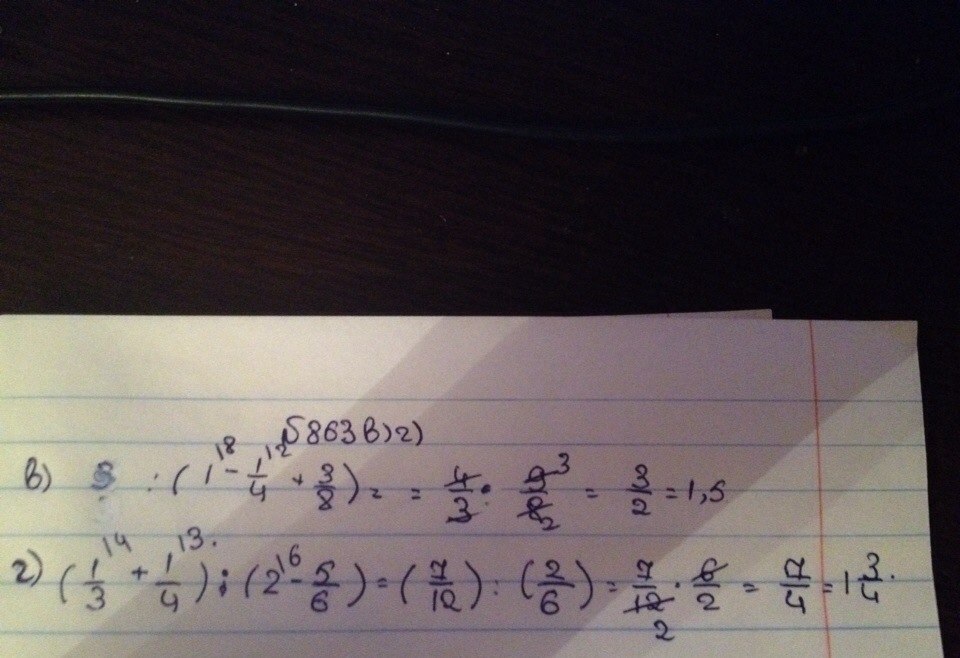 № 863 в) г)
в) : (1^{18} - 1/4^{12} + 3/8) = = 4/3 · 9/8 ^3 _2 = 3/2 = 1,5
г) (1/3^{14} + 1/4^{13}) : (2^{16} - 5/6) = (7/12) : (2/6) = 7/12 _2 · 6/2 = 7/4 = 1 3/4.